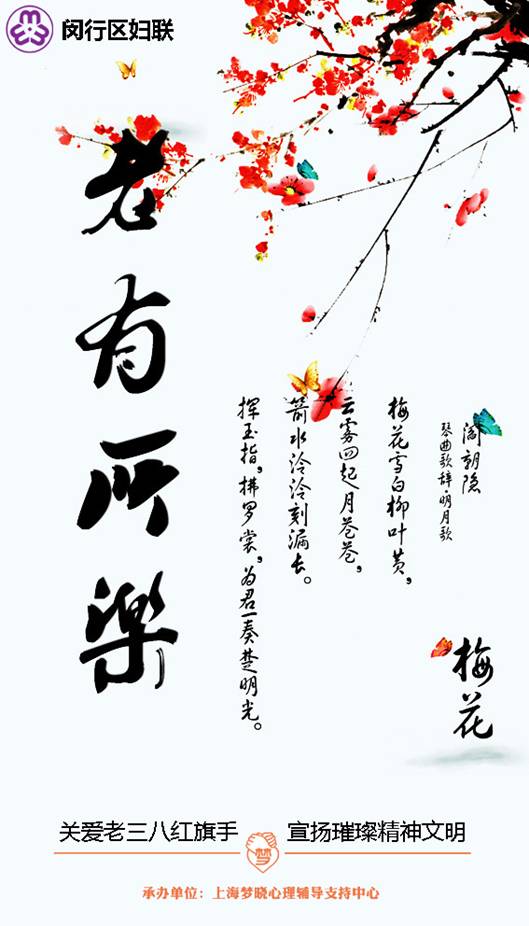 闵行区妇联
老有所樂
阎朝隐
琴曲歌辞·明月歌
梅花雪白柳叶黄，
云雾四起月苍苍，
箭水泠泠刻漏长。
挥玉指，拂罗裳，为君一奏楚明光。
梅花
关爱老三八红旗手 宣扬璀璨精神文明
梦
承办单位：上海梦晓心理辅导支持中心